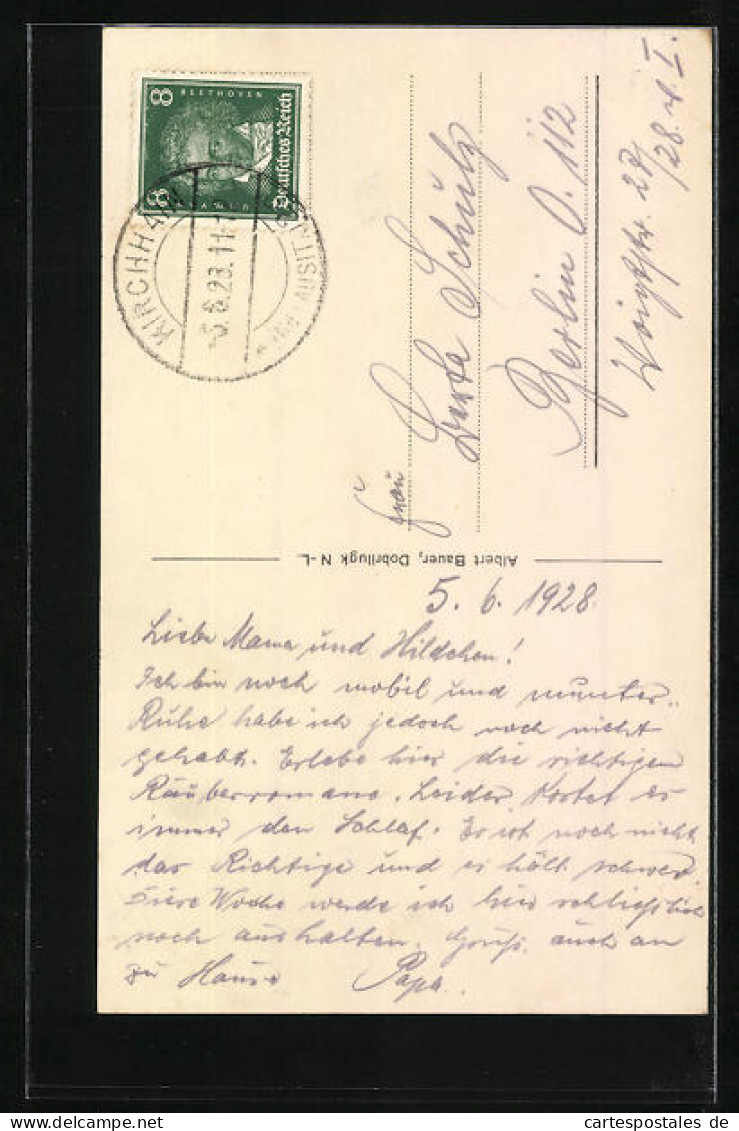 8 BEETHOVEN 8
Deutsches Reich
KIRCHHAIN
(NIEDERLAUSITZ)
-5.6.28.11-
Frau
Schulz
Berlin O. 112
Voigtstr. 27/28. v. I.
Albert Bauer, Dobrilugk N-L.
5. 6. 1928.
Liebe Mama und Hildchen!
Ich bin noch mobil und munter.
Ruhe habe ich jedoch noch nicht
gehabt. Erlebe hier die richtigen
Räuberromane. Leider kostet es
immer den Schlaf. Es ist noch nicht
das Richtige und es hält schwer.
Diese Woche werde ich hier schließlich
noch aushalten. Gruß auch an
zu Hause Papa.
cartespostales de